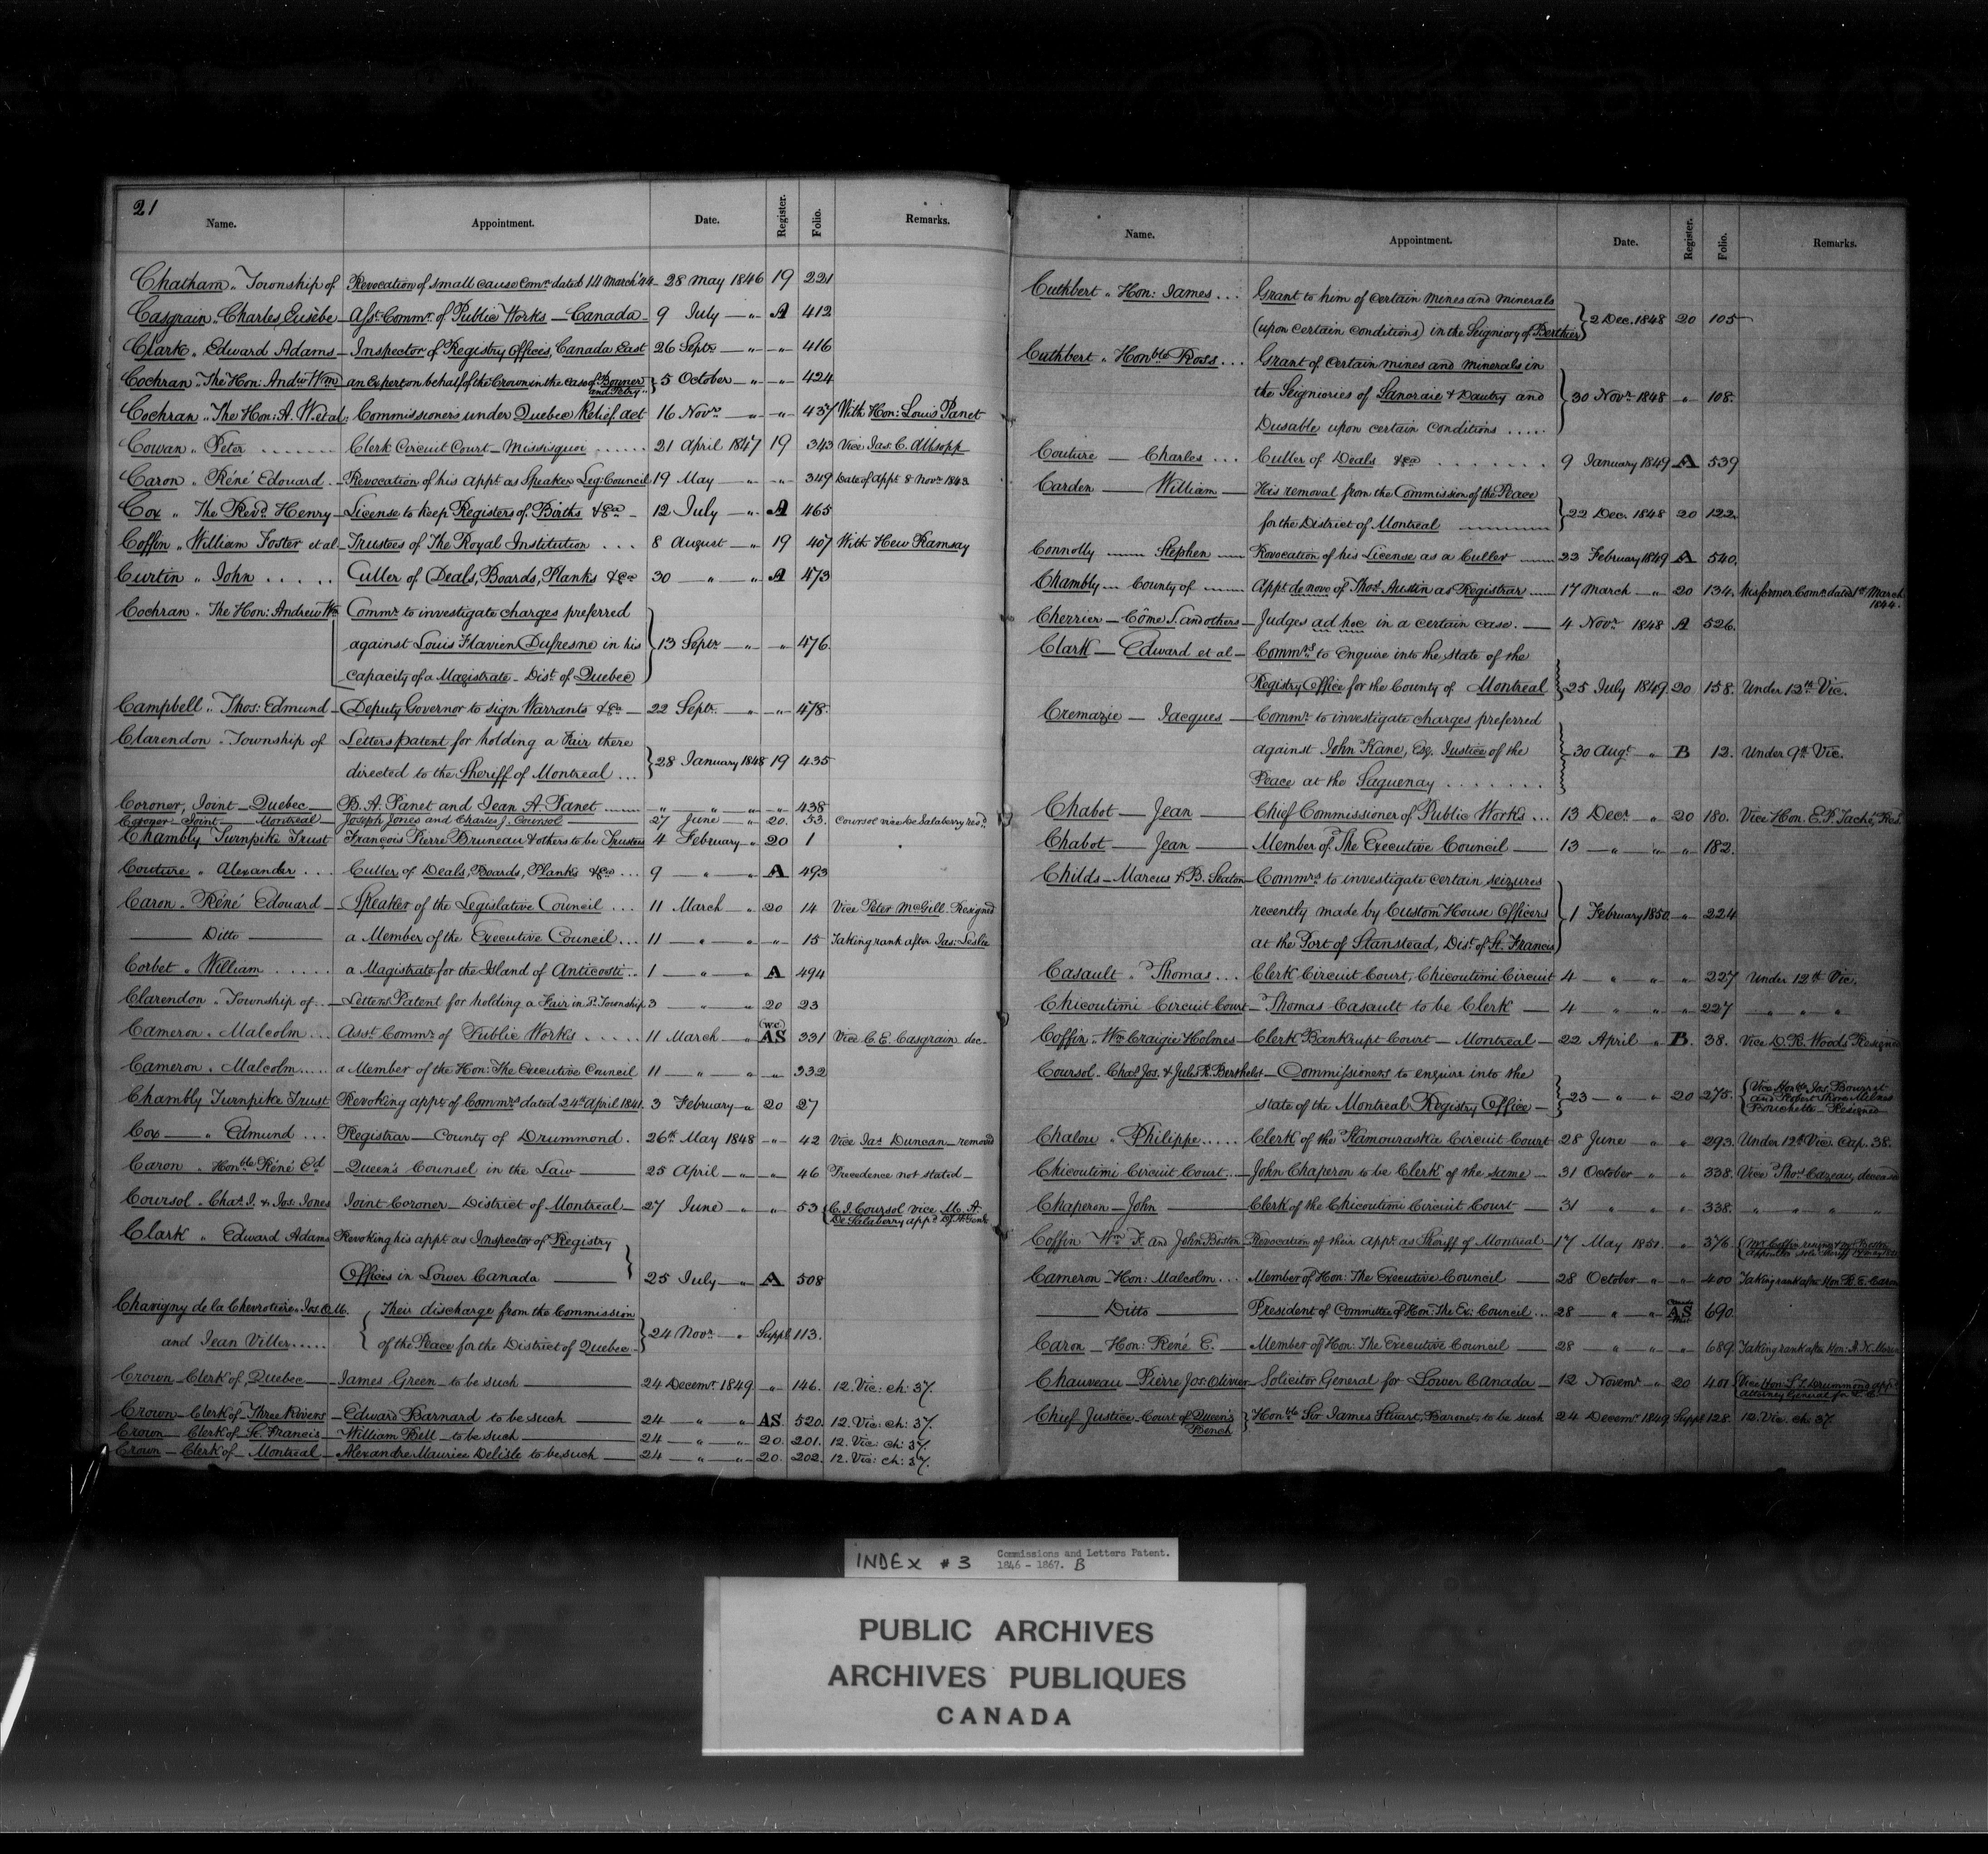 21
Name. Appointment. Date. Register. Folio. Remarks.
Chatham „ Township of Revocation of small cause Comn. dated 14 March '44 28 May 1846 19 221
Casgrain „ Charles Eusèbe Asst. Commr. of Public Works — Canada 9 July — „ A 412
Clark „ Edward Adams Inspector of Registry Offices, Canada East 26 Septr. — „ — „ 416
Cochran „ The Hon: Andw Wm an Expert on behalf of the Crown in the case of Bonner } 5 October — „ — „ 424
and Petry
Cochran „ The Hon: A. W. et al Commissioners under Quebec Relief act 16 Novr. — „ — „ 437 With Hon: Louis Panet
Cowan „ Peter Clerk Circuit Court — Missisquoi 21 April 1847 19 343 Vice Jas. C. Allsopp
Caron „ Réné Edouard Revocation of his Appt. as Speaker Leg: Council 19 May — „ — „ 349 Date of Appt 8 Novr. 1843
Cox „ The Revd. Henry License to keep Registers of Births &ca 12 July — „ A 465
Coffin „ William Foster et al Trustees of The Royal Institution 8 August — „ 19 407 With Hew Ramsay
Curtin „ John Culler of Deals, Boards, Planks &ca 30 „ „ A 473
Cochran „ The Hon: Andrew Wm Commr. to investigate charges preferred
against Louis Flavien Dufresne in his } 13 Septr. — „ — „ 476
capacity of a Magistrate — Dist. of Quebec
Campbell „ Thos: Edmund Deputy Governor to sign Warrants &ca 22 Septr. „ — „ 478
Clarendon „ Township of Letters patent for holding a Fair there
directed to the Sheriff of Montreal } 28 January 1848 19 435
Coroner, Joint — Quebec B. A. Panet and Jean A. Panet „ „ „ „ 438
Coroner — Joint — Montreal Joseph Jones and Charles J. Coursol 27 June — „ 20. 53. Coursol vice de Salaberry resd.
Chambly Turnpike Trust Francois Pierre Bruneau & others to be Trustees 4 February „ 20 1
Couture „ Alexander Culler of Deals, Boards, Planks &ca 9 „ „ A 493
Caron „ Réné Edouard Speaker of the Legislative Council 11 March „ 20 14 Vice Peter McGill. Resigned
Ditto a Member of the Executive Council 11 — „ „ — „ 15 Taking rank after Jas: Leslie
Corbet „ William a Magistrate for the Island of Anticosti 1 — „ „ A 494
Clarendon „ Township of Letters Patent for holding a Fair in Sd. Township 3 „ „ 20 23
Cameron „ Malcolm Asst. Commr. of Public Works 11 March — „ (WC) AS 331 Vice C. E. Casgrain dec.
Cameron „ Malcolm a Member of the Hon: The Executive Council 11 — „ „ — „ 332
Chambly Turnpike Trust Revoking appt. of Commrs dated 24th April 1841. 3 February — „ 20 27
Cox — „ Edmund Registrar — County of Drummond. 26th May 1848 — „ 42 Vice Jas Duncan — removed
Caron „ Honble Réné Ed Queen's Counsel in the Law 25 April — „ — „ 46 Precedence not stated —
Coursol „ Chas. J. & Jos. Jones Joint Coroner — District of Montreal 27 June — „ „ 53 { C. J. Coursol vice M. A.
De Salaberry
Clark „ Edward Adams Revoking his appt. as Inspector of Registry
Offices in Lower Canada } 25 July — „ A 508
Chavigny de la Chevrotière „ Jos. O. M. { Their discharge from the Commission
and Jean Viller { of the Peace for the District of Quebec } 24 Novr. — „ Suppl. 113.
Crown — Clerk of, Quebec James Green — to be such 24 Decemr. 1849 — „ 146. 12. Vic: ch: 37.
Crown — Clerk of — Three Rivers Edward Barnard to be such 24 — „ „ AS 520. 12. Vic: ch: 37.
Crown — Clerk of — St. Francis William Bell — to be such 24 — „ „ 20. 201. 12. Vic: ch: 37.
Crown — Clerk of — Montreal Alexandre Maurice Delisle to be such 24 — „ „ 20. 202. 12. Vic: ch: 37.
Name. Appointment. Date. Register. Folio. Remarks.
Cuthbert „ Hon: James Grant to him of certain mines and minerals
(upon certain conditions) in the Seigniory of Berthier } 2 Dec. 1848 20 105
Cuthbert „ Honble Ross Grant of certain mines and minerals in
the Seigniories of Lanoraie & Dautry and } 30 Novr. 1848 „ 108.
Dusable upon certain conditions
Couture — Charles Culler of Deals &ca 9 January 1849 A 539
Carden — William His removal from the Commission of the Peace
for the District of Montreal } 22 Dec. 1848 20 122.
Connolly — Stephen Revocation of his License as a Culler 22 February 1849 A 540.
Chambly — County of Appt. de novo of Thos. Austin as Registrar 17 March — „ 20 134. His former Comn. dated 1st March
1844.
Cherrier — Côme S. and others Judges ad hoc in a certain case. 4 Novr. 1848 A 526.
Clark — Edward et al Commrs to enquire into the state of the
Registry Office for the County of Montreal } 25 July 1849 20 158. Under 12th Vic.
Cremazie — Jacques Commr. to investigate charges preferred
against John Kane, Esq. Justice of the } 30 Augt. „ B 12. Under 9th Vic.
Peace at the Saguenay
Chabot — Jean Chief Commissioner of Public Works 13 Decr. „ 20 180. Vice Hon. E. P. Taché, Resd.
Chabot — Jean Member of The Executive Council 13 — „ „ „ 182.
Childs — Marcus & B. Seaton Commrs. to investigate certain seizures
recently made by Custom House Officers } 1 February 1850 „ 224
at the Port of Stanstead, Dist. of St. Francis
Casault „ Thomas Clerk Circuit Court, Chicoutimi Circuit 4 — „ — „ „ 227 Under 12th Vic.
Chicoutimi Circuit Court Thomas Casault to be Clerk 4 „ „ „ 227 „ „ „
Coffin „ Wm. Craigie Holmes Clerk Bankrupt Court — Montreal 22 April „ B. 38. Vice D. R. Woods Resigned
Coursol „ Chas. Jos. & Jules R. Berthelot Commissioners to enquire into the
state of the Montreal Registry Office } 23 — „ „ 20 275. { Vice Honble Jas. Bourret
and Robert Shore Milnes
Bouchette — Resigned
Chalou „ Philippe Clerk of the Kamouraska Circuit Court 28 June — „ „ 293. Under 12th Vic. Cap. 38.
Chicoutimi Circuit Court John Chaperon to be Clerk of the same 31 October „ „ 338. Vice Thos. Cazeau, deceased
Chaperon — John Clerk of the Chicoutimi Circuit Court 31 „ „ „ 338. „ „ „ „
Coffin Wm. F. and John Boston Revocation of their Appt. as Sheriff of Montreal 17 May 1851. „ 376. (Mr. Coffin resigned Mr. Boston
appointed sole Sheriff
Cameron — Hon: Malcolm Member of Hon: The Executive Council 28 October „ „ 400 Taking rank after Hon. R. E. Caron
Ditto President of Committee of Hon: The Ex: Council 28 „ „ Canada West AS 690.
Caron — Hon: René E. Member of Hon: The Executive Council 28 „ „ „ 689 Taking rank after Hon: A. N. Morin
Chauveau — Pierre Jos. Olivier Solicitor General for Lower Canada 12 Novemr. „ 20 401. Vice Hon: L. T. Drummond app.
Attorney General for L. C.
Chief Justice — Court of Queen's } Honble Sir James Stuart, Baronet, to be such 24 Decemr. 1849 Suppl. 128. 12. Vic. ch: 37
Bench
INDEX #3 Commissions and Letters Patent.
1846 - 1867. B
PUBLIC ARCHIVES
ARCHIVES PUBLIQUES
CANADA